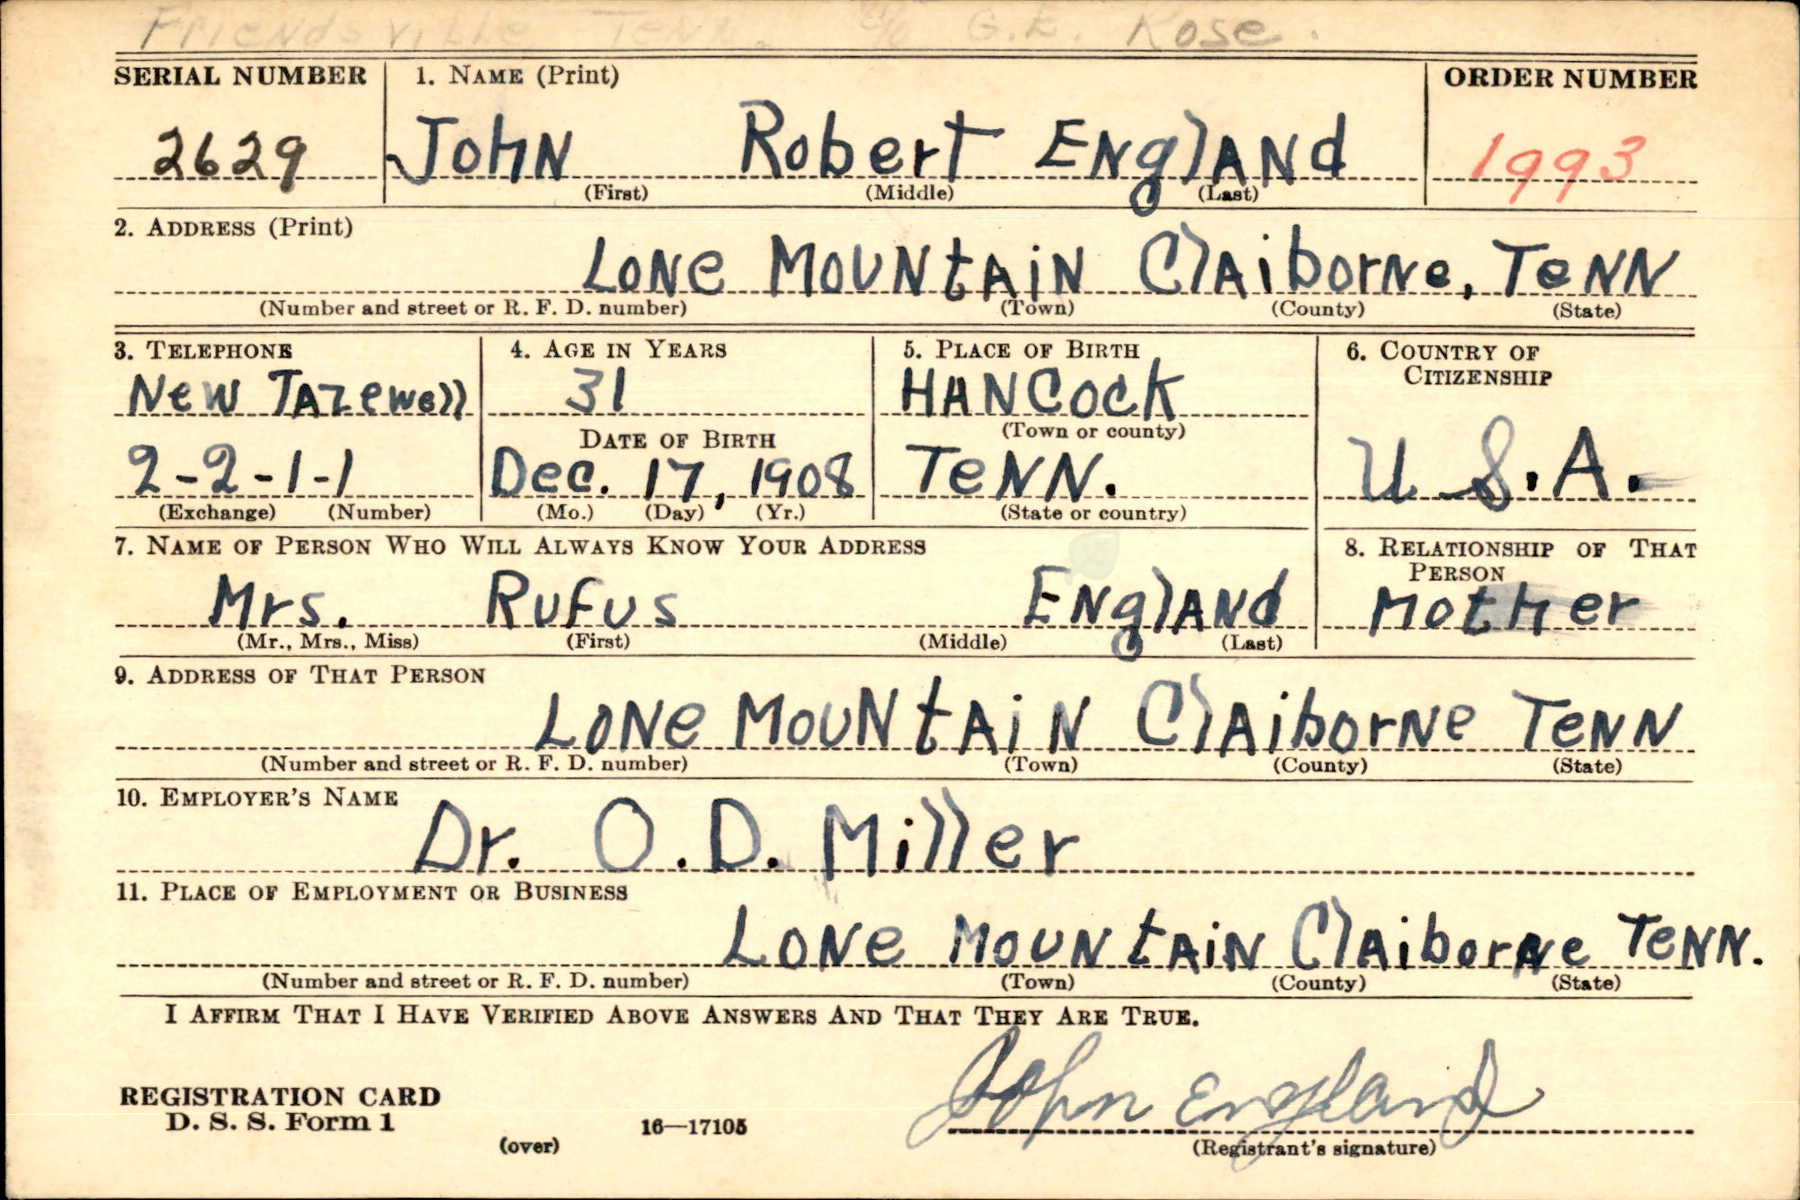 Friendsville Tenn. % G.E. Rose.
SERIAL NUMBER 1. NAME (Print) ORDER NUMBER
2629 John Robert England 1993
(First) (Middle) (Last)
2. ADDRESS (Print)
Lone Mountain Claiborne, Tenn
(Number and street or R. F. D. number) (Town) (County) (State)
3. TELEPHONE 4. AGE IN YEARS 5. PLACE OF BIRTH 6. COUNTRY OF CITIZENSHIP
New Tazewell 31 Hancock
DATE OF BIRTH (Town or county)
2-2-1-1 Dec. 17, 1908 Tenn. U.S.A.
(Exchange) (Number) (Mo.) (Day) (Yr.) (State or country)
7. NAME OF PERSON WHO WILL ALWAYS KNOW YOUR ADDRESS 8. RELATIONSHIP OF THAT PERSON
Mrs. Rufus England Mother
(Mr., Mrs., Miss) (First) (Middle) (Last)
9. ADDRESS OF THAT PERSON
Lone Mountain Claiborne Tenn
(Number and street or R. F. D. number) (Town) (County) (State)
10. EMPLOYER'S NAME
Dr. O.D. Miller
11. PLACE OF EMPLOYMENT OR BUSINESS
Lone Mountain Claiborne Tenn.
(Number and street or R. F. D. number) (Town) (County) (State)
I AFFIRM THAT I HAVE VERIFIED ABOVE ANSWERS AND THAT THEY ARE TRUE.
John England
REGISTRATION CARD
D. S. S. Form 1
(over) 16—17105 (Registrant's signature)